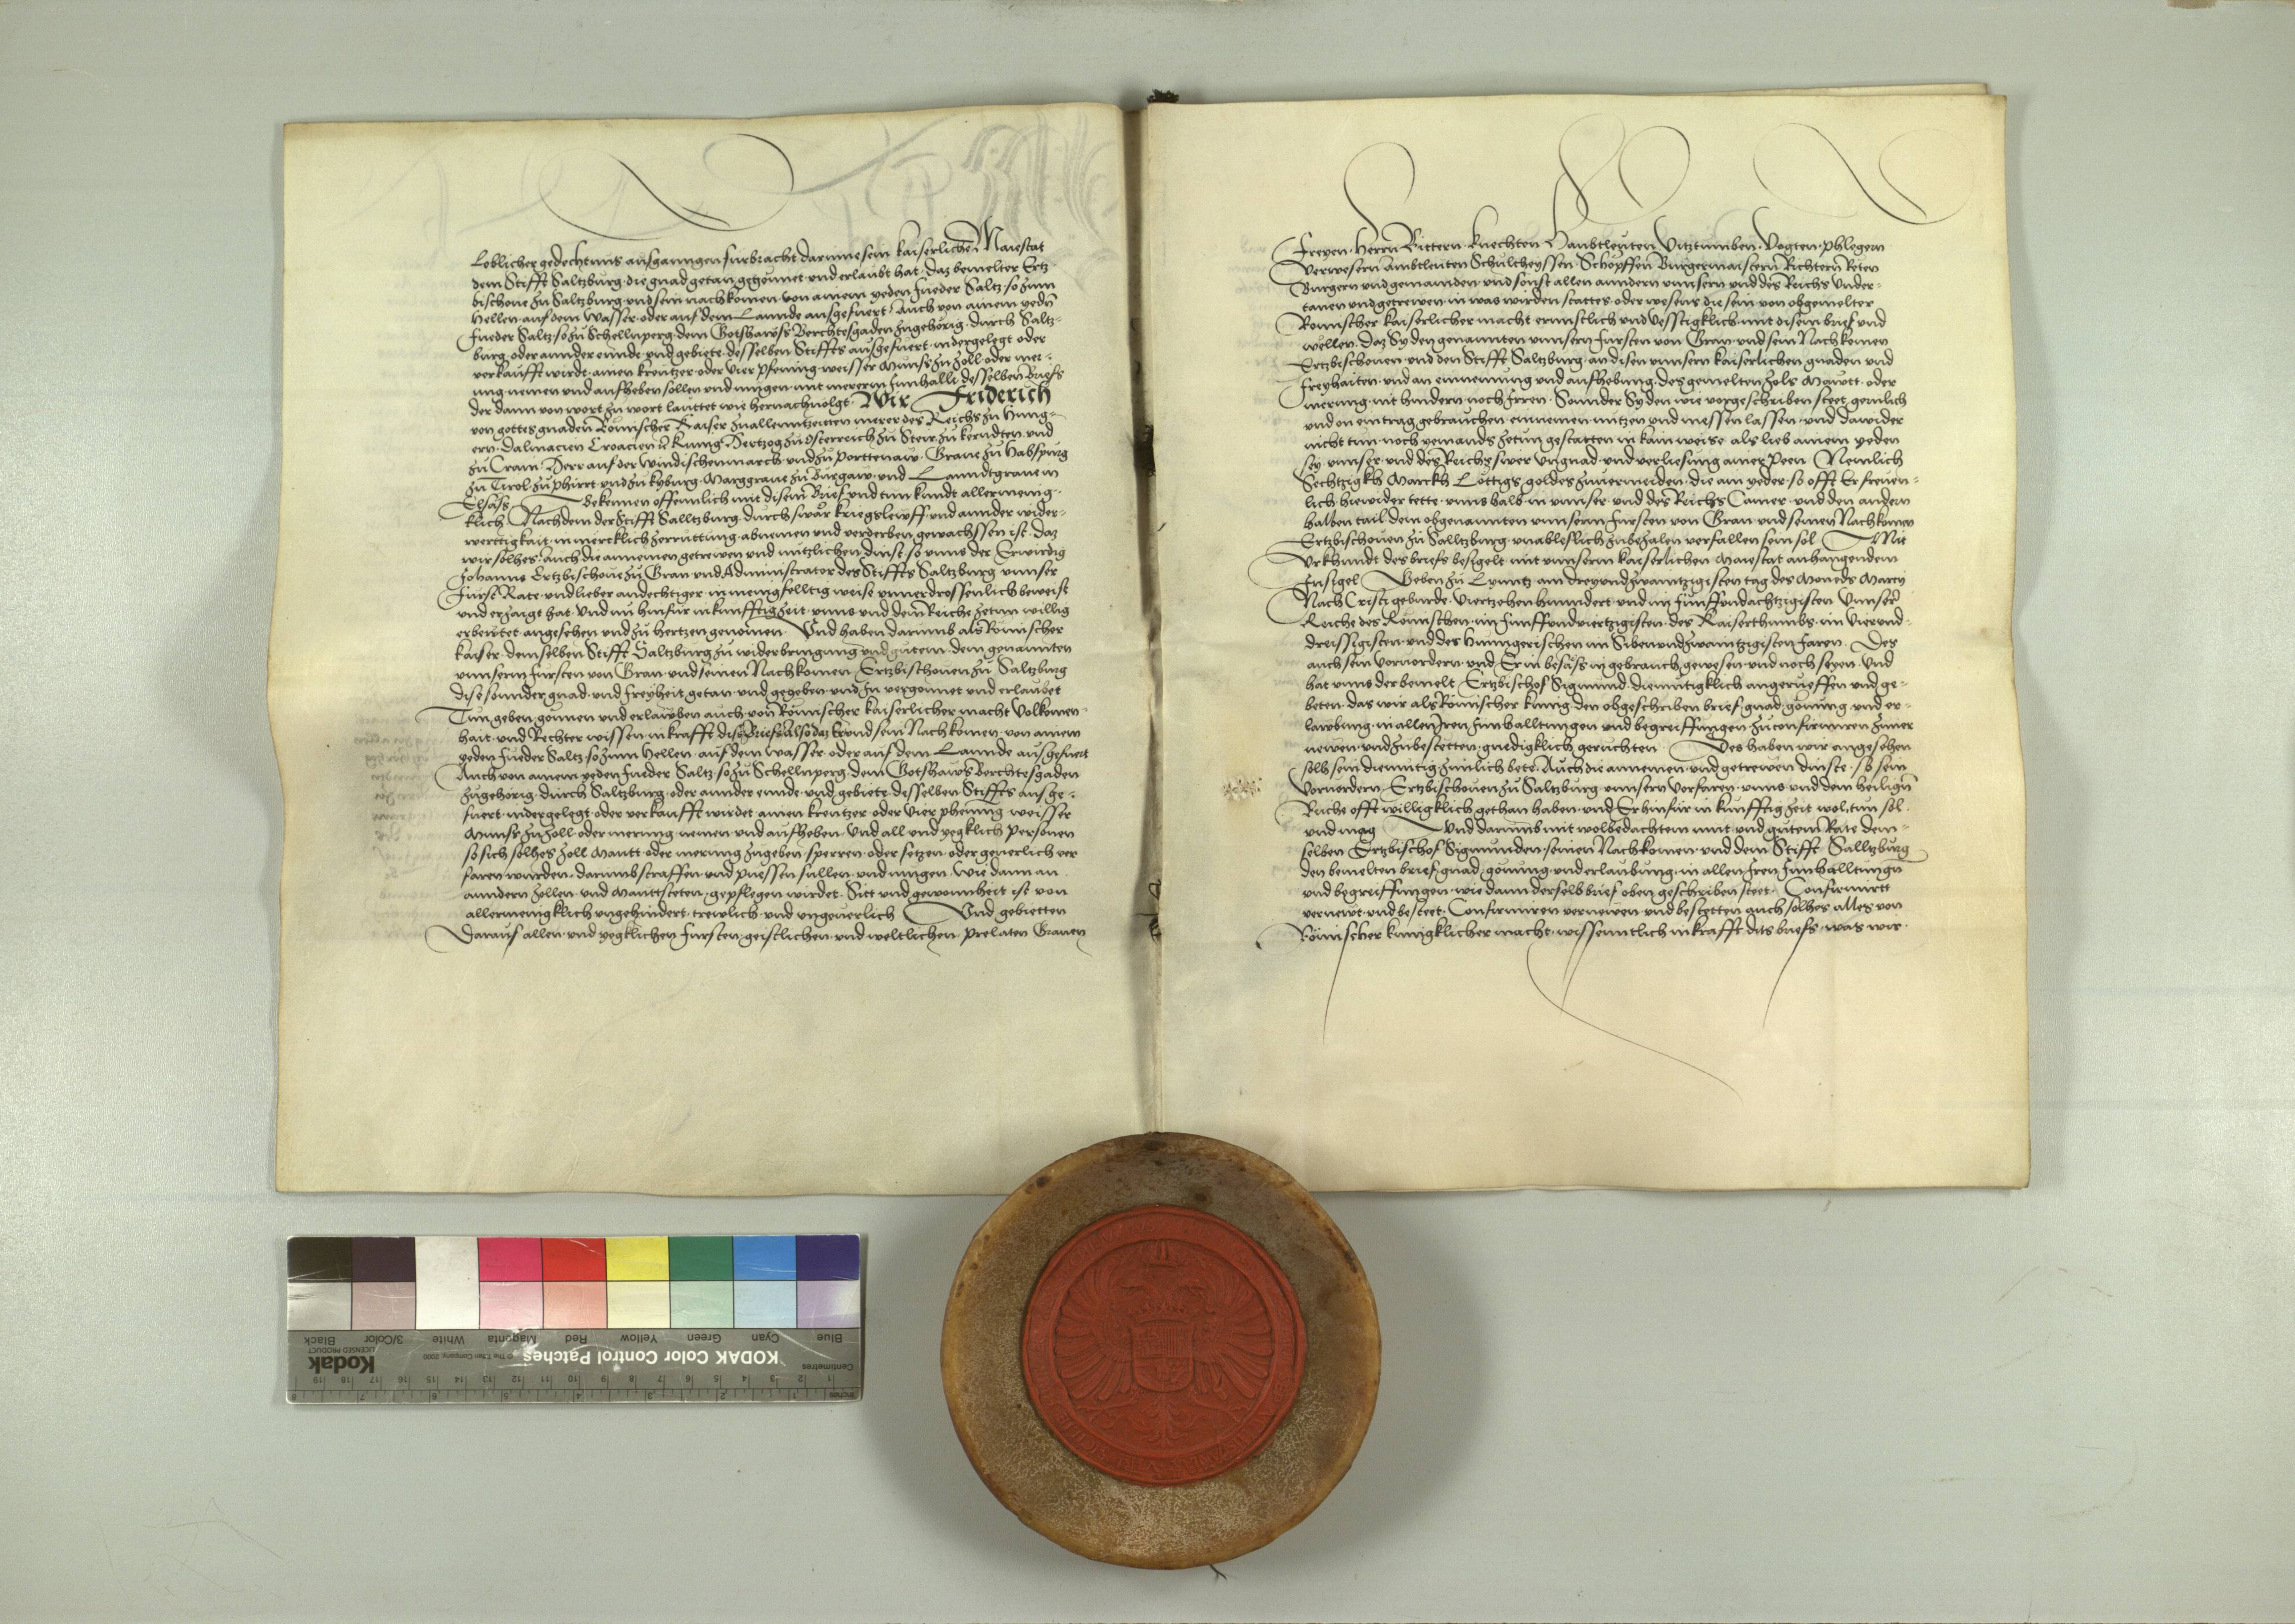 Loblicher gedechtnus ausganngen furbracht darinne sein kaiserlichen Maiestat
dem Stifft Saltzburg die gnad getan gegonnet und erlaubt hat. daz bemelter Ertz-
bischove zu Saltzburg und sein nachkomen von ainem yeden fueder Saltz so zum
Hellen auf dem Wasser oder auf dem Lannde ausgefuert. auch von ainem yeden
fueder Saltz so zu Schellnperg dem Gotshawss Berchtesgaden zugehorig durch Saltz-
burg oder annder ennde und gebiete desselben Stiffts ausgefuert nidergelegt oder
verkaufft wirdt ainen kreutzer oder vier pfening weisser Munss zu zoll oder mer-
ung nemen und aufheben sollen und mugen mit mererm Innhallt desselben briefs
der dann von wort zu wort lauttet wie hernachvolgt Wir Friderich
von gottes gnaden Römischer Kaiser zu allenntzeitten merer des Reichs zu Hung-
ern Dalmacien Croacien etc Kunig Hertzog zu Osterreich zu Steir zu Kerndten und
zu Crain Herr auf der Windischenmarch und zu Porttenaw Grave zu Habspurg
zu Tirol zu Phirrt und zu Kyburg Marggrave zu Burgaw und Lanndtgrave in
Elsass Bekennen offennlich mit disem Brief und tun kundt allermenig-
klich Nachdem der Stifft Salltzburg durch swar kriegslewff und annder wider-
werttigkait in mercklich zerruttung abnemen und verderben gewachssen ist. daz
wir solhes. auch die annemen getrewen und nutzlichen dinst so unns der Erwirdig
Johanns Ertzbischove zu Gran und Administrator des Stiffts Saltzburg unnser
Furst Rate und lieber andechtiger in menigfelltig weise unverdrossenlich beweist
und erzaigt hat. und nu hinfur in kunfftig zeit unns und dem Reiche zetun willig
erbewtet angesehen und zu hertzen genomen Und haben darumb als Römischer
kaiser demselben Stifft Saltzburg zu widerbringung und gutem dem genannten
unnserm fursten von Gran und seinen Nachkomen Ertzbischoven zu Saltzburg
dise sonnder gnad und freyheit getan und gegeben und In vergonnet und erlaubet
Tun geben gonnen und erlawben auch von Römischer kaiserlicher macht volkomen-
hait und Rechter wissen in krafft diss Briefs also daz Er und sein Nachkomen von ainem
yeden fueder Saltz so zum Hellen auf dem Wasser oder auf dem Lannde ausgefuert
Auch von ainem yeden fueder Saltz so zu Schellnperg dem Gotshaws Berchtesgaden
zugehorig durch Saltzburg oder annder ennde und gebiete desselben Stiffts ausge-
fuert nidergelegt oder verkaufft wirdet ainen kreutzer oder Vier phening weisser
Munss zu zoll oder merung nemen und aufheben. Und all und yegklich personen
so sich solhes zoll Mautt oder merung zugeben sperren oder setzen oder geverlich ver
faren wurden darumb straffen und puessen sullen und mugen Wie dann an
anndern zollen und Mauttsteten gepflegen wirdet. Sitt und gewonnheit ist von
allermenigklich ungehindert trewlich und ungeverlich Und gebietten
Darauf allen und yegklichen fursten geistlichen und weltlichen prelaten Graven
Freyen Herrn Rittern knechten Haubtleuten Vitztumben Vogten phlegern
Verwesern ambtleuten Schultheyssen Schöpffen Burgermaistern Richtern Reten
Burgern und gemainden und sonst allen anndern unnsern und des Reichs Under-
tanen und getrewen in was wirden stattes oder wesens die sein von obgemelter
Römischer kaiserlicher macht ernnstlich und Vesstigklich mit disem brief und
wellen. daz Sy den genannten unnsern fursten von Gran und sein Nachkomen
Ertzbischoven und den Stifft Saltzburg an disen unnsern kaiserlichen gnaden und
freyhaiten und an einnemung und aufhebung des gemelten zols Mautt oder
merung nit hindern noch Irren. Sonnder Sy den wie vorgeschriben steet gerulich
und on eintrag gebrauchen einnemen nutzen und niessen lassen und dawider
nicht tun noch yemands zetun gestatten in kain weise als lieb ainem yeden
sey unnser und des Reichs swer ungnad und verliesung ainer peen Nemlich
Sechtzigkh Marckh Lottigs goldes zuvermeiden die ain yeder so offt Er freven-
lich hiewider tette unns halb in unnser und des Reichs Camer und den andern
halben tail dem obgenannten unnserm fursten von Gran und seinen Nachkomen
Ertzbischoven zu Salltzburg unableslich zubezalen verfallen sein sol Mit
Urkhundt des briefs besigelt mit unnserm kaiserlichen Maiestat anhangendem
Innsigel Geben zu Lynntz am dreyundzwaintzigisten tag des Moneds Marcy
Nach Cristi geburde Viertzehenhunndert und im fünffundachtzigisten Unnser
Reiche des Römischen im funffundviertzigisten des Kaiserthumbs im Vierund-
dreissigisten und des Hunngerischen im Sibenundzwaintzigisten Jaren Des
auch sein Vorvordern und Er in besass in gebrauch gewesen und noch seyen Und
hat unns der bemelt Ertzbischof Sigmund diemutigklich angerueffen und ge-
beten das wir als Römischer kunig den obgeschriben brief gnad gonung und er-
lawbung in allen Iren Innhalltungen und begreiffungen zu confirmiren zuver
newen und zubestetten gnedigklich geruchten Des haben wir angesehen
solh sein diemutig zimlich bete. Auch die annemen und getrewen dinste so sein
Vorvordern Ertzbischoven zu Saltzburg unnsern Vorfaren unns und dem heiligen
Reiche offt willigklich gethan haben und Er hinfür in kunfftig zeit wol tun sol
und mag Und darumb mit wolbedachtem mut und gutem Rate dem-
selben Ertzbischof Sigmunden seinen Nachkomen und dem Stifft Salltzburg
den bemelten brief gnad gonung und erlaubung in allen Iren Innhalltungen
und begreiffungen wie dann derselb brief oben geschriben steet Confirmirtt
vernewt und bestett Confirmiren vernewen und bestetten auch solhes alles von
Römischer kunigklicher macht wissenntlich in krafft dits briefs was wir
KODAK Color Control Patches
Kodak
LICENSED PRODUCT
Black
3/Color
White
Magenta
Red
Yellow
Green
Cyan
Blue
Centimetres
Inches